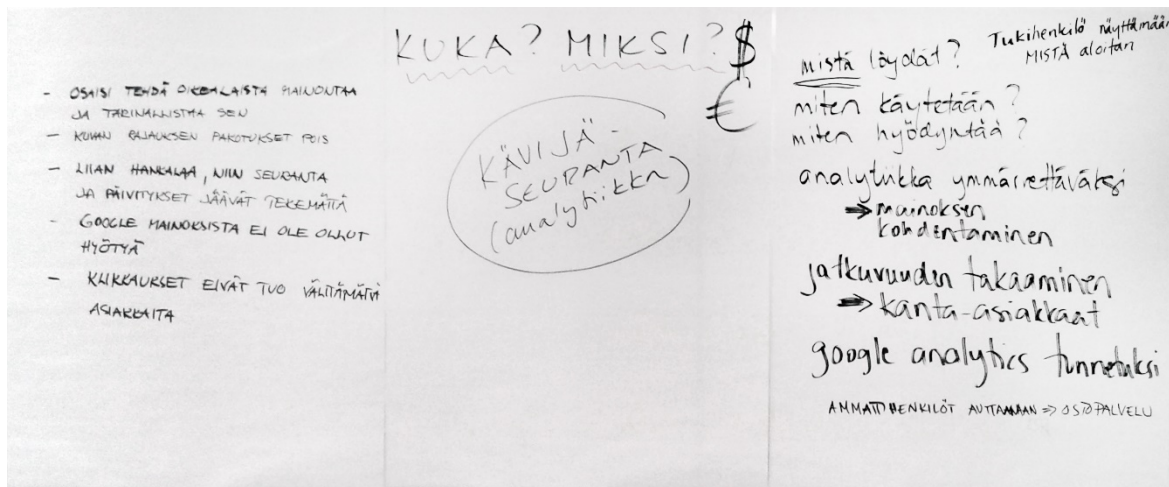 KUKA? MIKSI? $
€
- OSAISI TEHDÄ OIKEALAISTA MAINONTAA
JA TARINALLISTAA SEN
- KUVAN RAJAUKSEN PAKOTUKSET POIS
- LIIAN HANKALAA, NIIN SEURANTA
JA PÄIVITYKSET JÄÄVÄT TEKEMÄTTÄ
- GOOGLE MAINOKSISTA EI OLE OLLUT
HYÖTYÄ
- KLIKKAUKSET EIVÄT TUO VÄLTTÄMÄTTÄ
ASIAKKAITA
KÄVIJÄ-
SEURANTA
(analytiikka)
Tukihenkilö näyttämään
MISTÄ aloitan
mistä löydät?
miten käytetään?
miten hyödyntää?
analytiikka ymmärrettäväksi
⇒ mainoksen
kohdentaminen
jatkuvuuden takaaminen
⇒ kanta-asiakkaat
google analytics tunnetuksi
AMMATTIHENKILÖT AUTTAMAAN ⇒ OSTOPALVELU